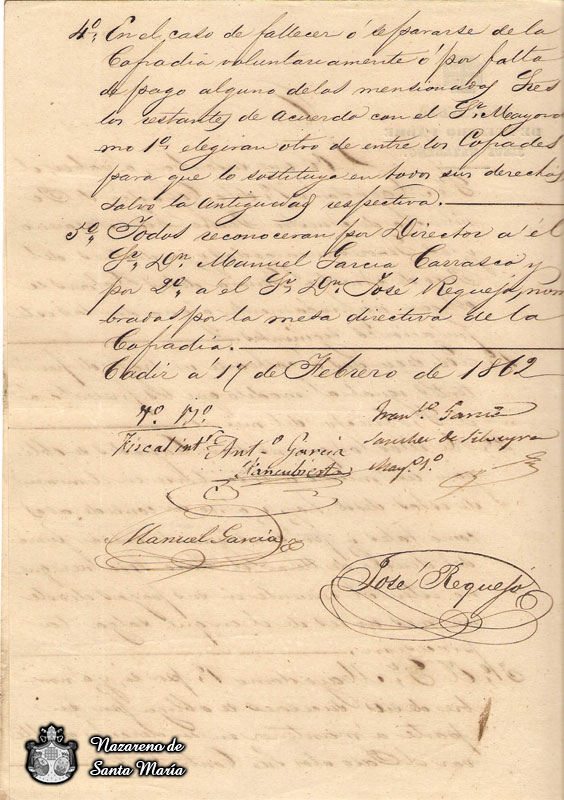 4º, En el caso de fallecer ó separarse de la
Cofradia voluntariamente ó por falta
de pago alguno de los mencionados Tres
los restantes de acuerdo con el Sr. Mayordo
mo 1º elegiran otro de entre los Cofrades
para que lo sustituya en todos sus derechos
salvo la Antigueda respectiva.
5º, Todos reconoceran por Director a el
Sr. Dn. Manuel Garcia Carrasco y
por 2º, a el Sr. Dn. José Requejo, nom
brados por la mesa directiva de la
Cofradía.
Cadiz a 17 de Febrero de 1862
Vº Bº
Fiscal intº Antº Garcia
Mayº 1º
Manuel Garcia
José Requejo
Nazareno de
Santa María